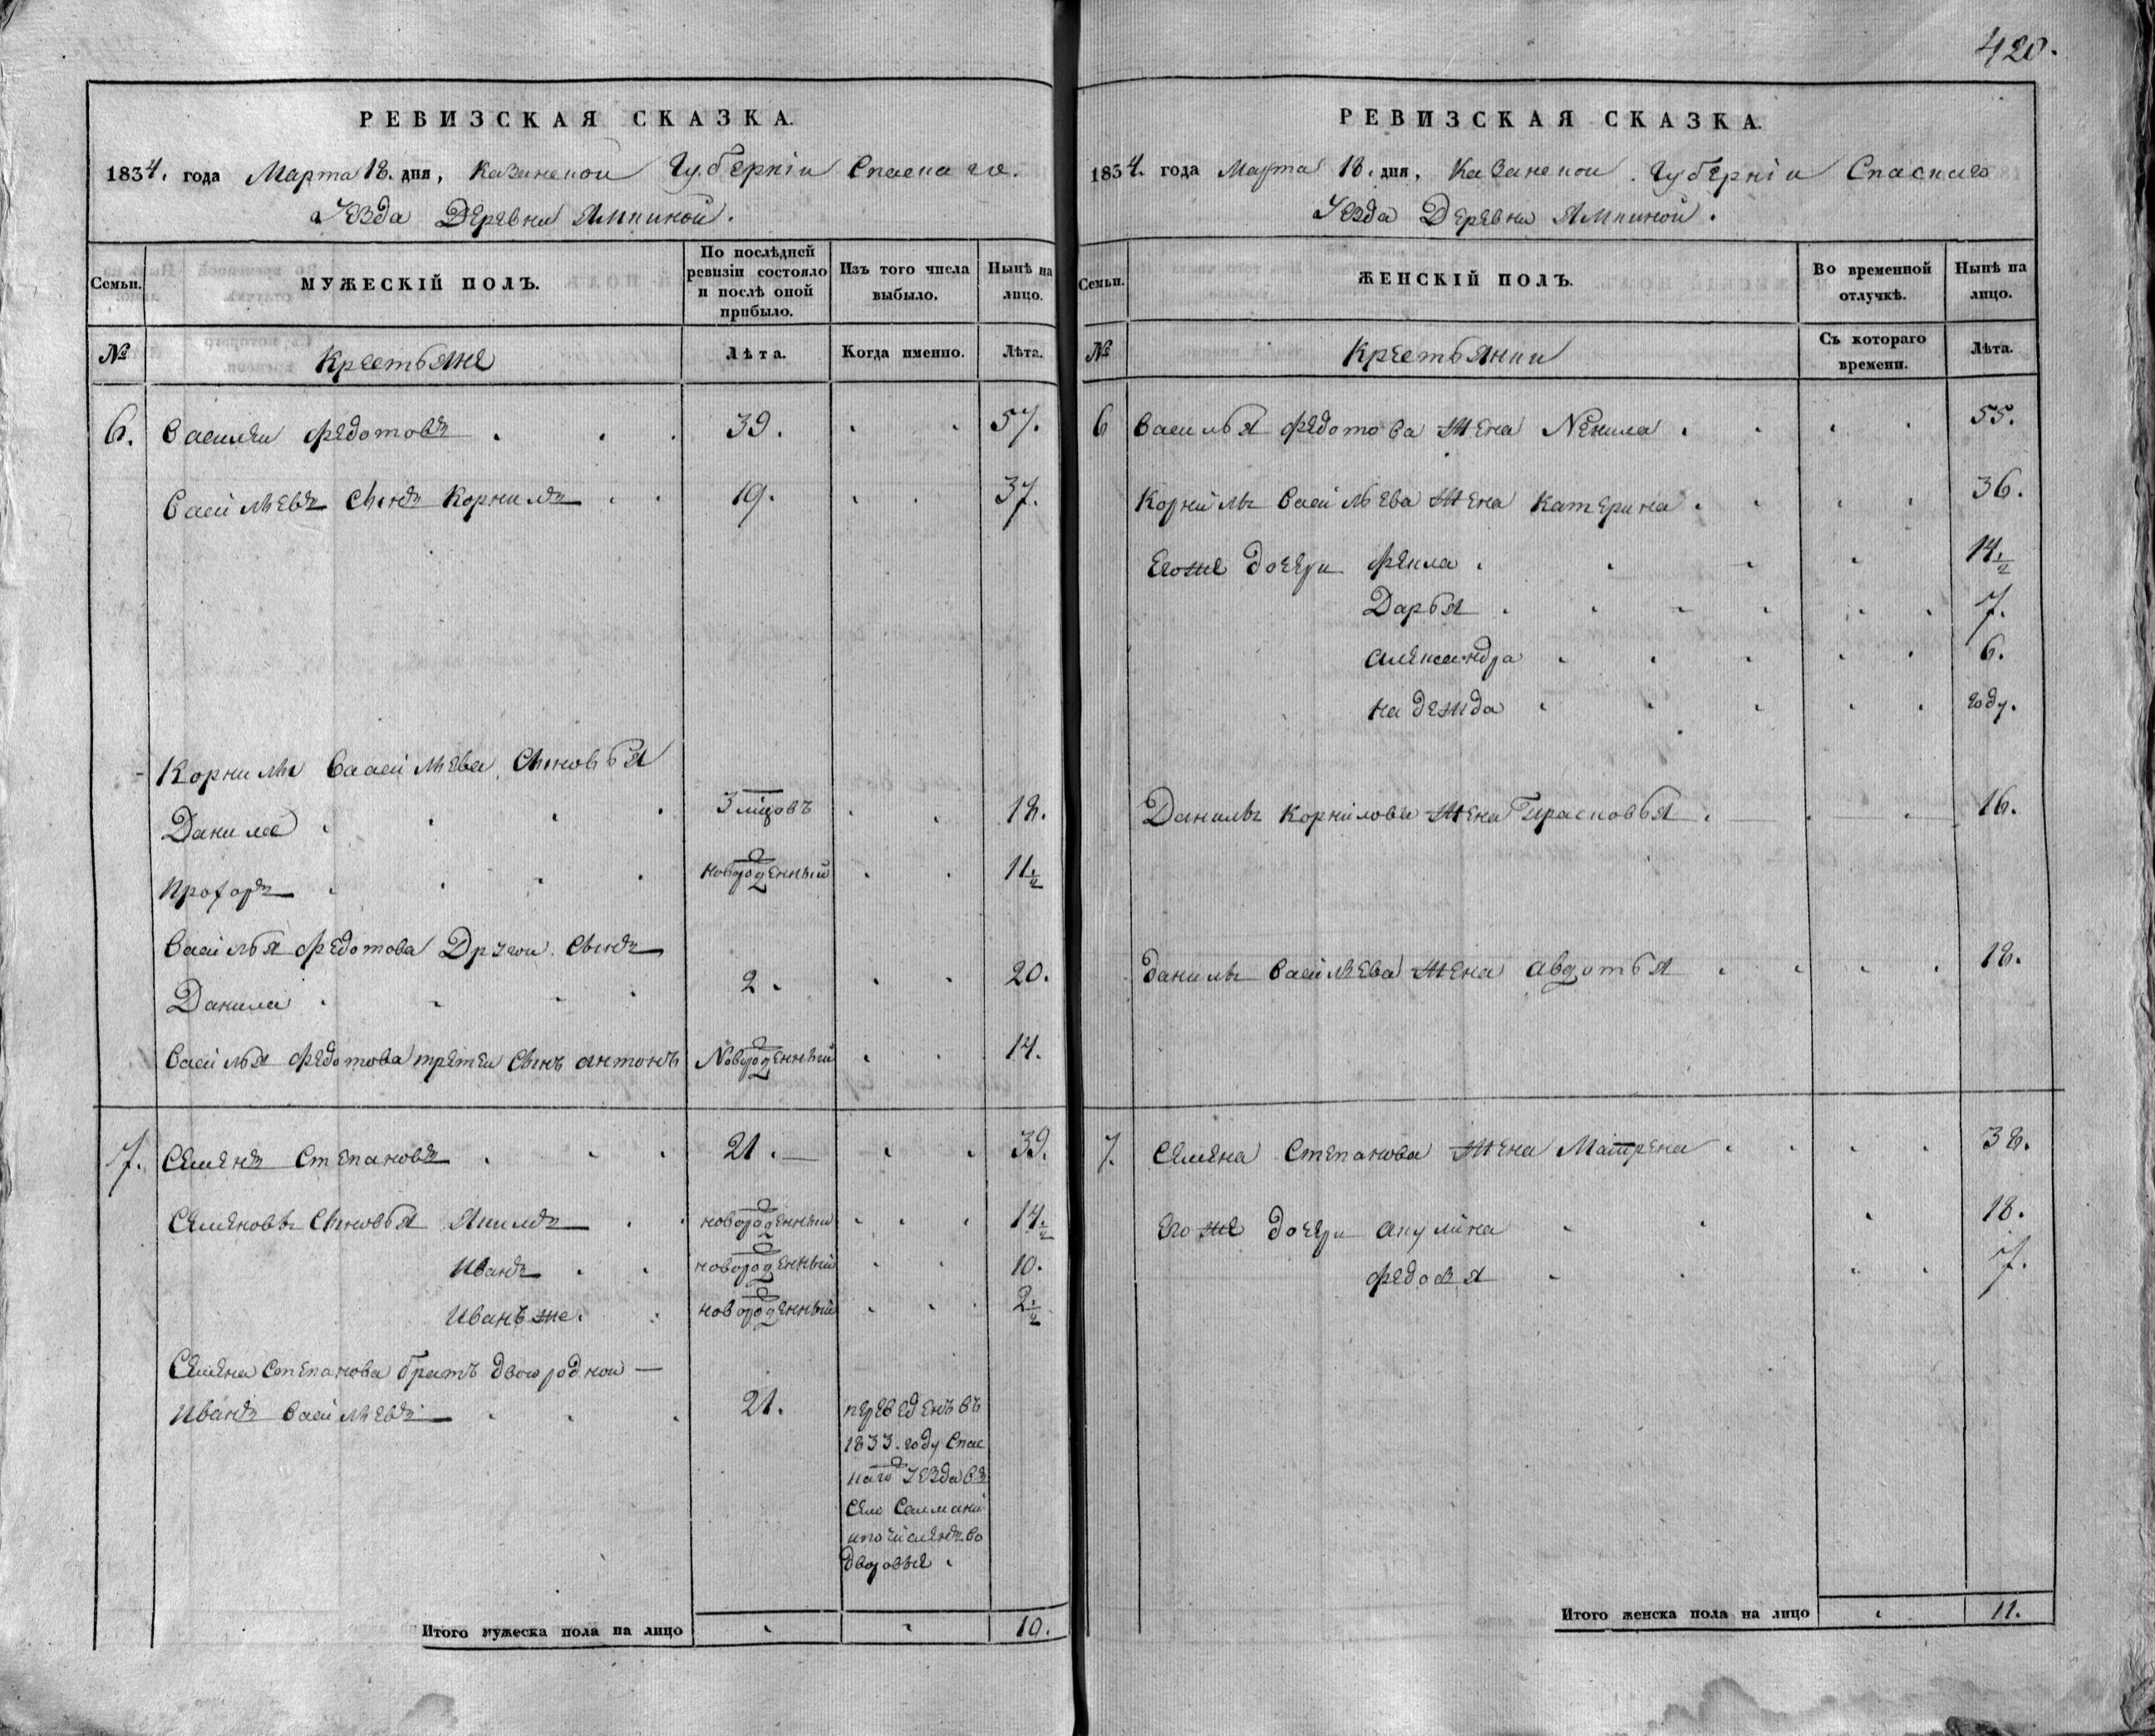 420.
РЕВИЗСКАЯ СКАЗКА.
1834. года Марта 18. дня, Казанской Губерніи Спаскаго.
Уѣзда Деревни Ямкиной.
Семьи.
МУЖЕСКІЙ ПОЛЪ.
По послѣдней ревизіи состояло и послѣ оной прибыло.
Изъ того числа выбыло.
Нынѣ на лицо.
№
Крестьяне
Лѣта.
Когда именно.
Лѣта.
6. Василеи Федотовъ 39. 57.
Васильевъ сынъ Корнилъ 19. 37.
Корнилы Васильева сыновья
Данила 3 мцовъ 18.
Прохоръ новорожденный 11.½
Василья Федотова Другои сынъ
Данила 2. 20.
Василья Федотова третеи сынъ Антонъ Новорожденный 14.
7. Семенъ Степановъ 21. 39.
Семеновы сыновья Якимъ новорожденный 14.½
Иванъ новорожденный 10.
Иванъ же. новорожденный 2.½
Семена Степанова братъ двоюродной
Иванъ Васильевъ 21. переведенъ въ
1833. году Спас
каго Уезда въ
село Салманы
и почисленъ во
дворовые
Итого мужеска пола на лицо 10.
РЕВИЗСКАЯ СКАЗКА.
1834. года Марта 18. дня, Казанской Губерніи Спаскаго
Уѣзда Деревни Ямкиной.
Семьи.
ЖЕНСКІЙ ПОЛЪ.
Во временной отлучкѣ.
Нынѣ на лицо.
№
Крестьянки
Съ котораго времени.
Лѣта.
6 Василья Федотова жена Ненила 55.
Корнилы Васильева жена Катерина 36.
Егоже дочери Фекла 14.½
Дарья 7.
Александра 6.
Надежда году.
Данилы Корнилова жена Прасковья 16.
Данилы Васильева жена Авдотья 18.
7. Семена Степанова жена Матрена 38.
Его же дочери Акулина 18.
Федосья 7.
Итого женска пола на лицо 11.